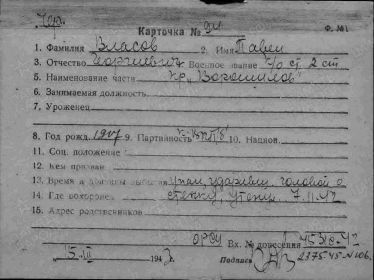 Чер.
Карточка № 911 Ф. №1
1. Фамилия Власов 2. Имя Павел
3. Отчество Георгиевич Военное звание к/о ст. 2 ст.
5. Наименование части кр. „Ворошилов"
6. Занимаемая должность
7. Уроженец
8. Год рожд. 1907 9. Партийность к-ВКПб 10. Национ.
11. Соц. положение
12. Кем призван
13. Время и причины выбытия упал, ударивш. головой о
14. Где похоронен стенку, утонул 7.11.42
15. Адрес родственников
ОРСУ Вх. № донесения 45310-42
15. XII 1942 г. Подпись 2375.45 N 106.